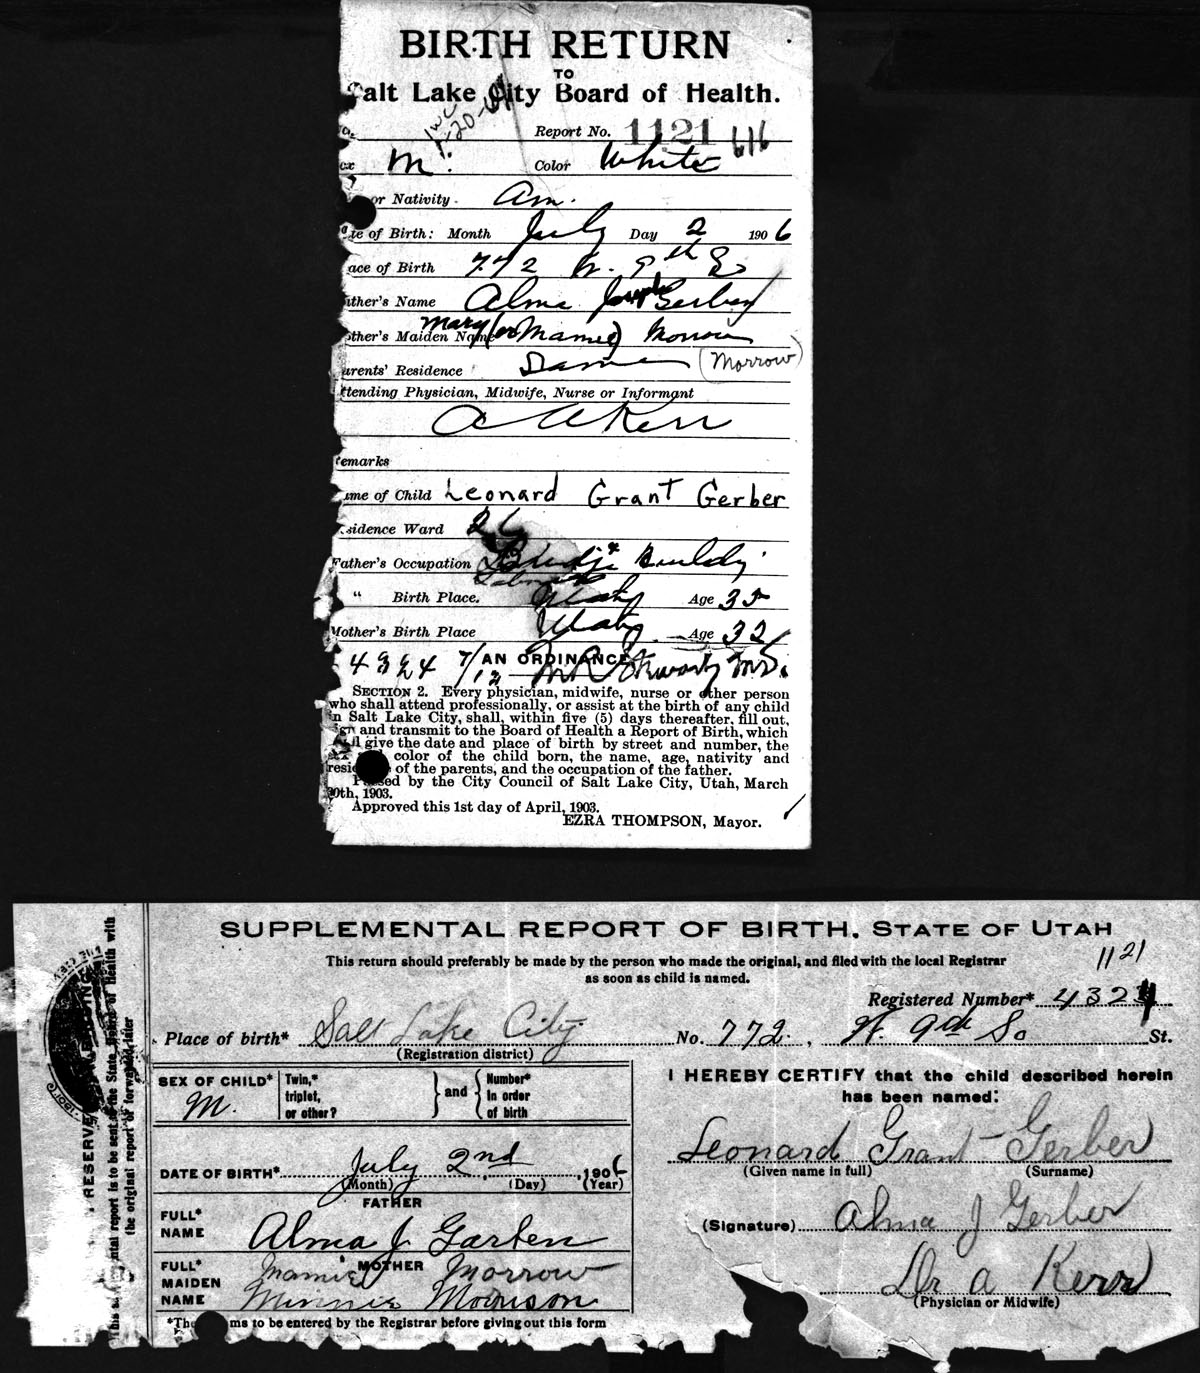 BIRTH RETURN
TO
Salt Lake City Board of Health.
1-20-
Report No. 1121 616
M. Color White
or Nativity. Am.
te of Birth: Month July Day 2 1906
ace of Birth 772 W. 9th S
ather's Name Alma Joseph Gerber
other's Maiden Name Mary (or Mamie) Morrow
arents' Residence Same (Morrow)
ttending Physician, Midwife, Nurse or Informant
A Kerr
emarks
ame of Child Leonard Grant Gerber
sidence Ward 26
Father's Occupation Bridge Buildg
Laborer
" Birth Place. Utah Age 35
Mother's Birth Place Utah Age 32
4324 7/12 AN ORDINANCE.
SECTION 2. Every physician, midwife, nurse or other person
who shall attend professionally, or assist at the birth of any child
in Salt Lake City, shall, within five (5) days thereafter, fill out,
ign and transmit to the Board of Health a Report of Birth, which
ll give the date and place of birth by street and number, the
color of the child born, the name, age, nativity and
resi of the parents, and the occupation of the father.
Passed by the City Council of Salt Lake City, Utah, March
30th, 1903.
Approved this 1st day of April, 1903.
EZRA THOMPSON, Mayor.
SUPPLEMENTAL REPORT OF BIRTH. STATE OF UTAH
This return should preferably be made by the person who made the original, and filed with the local Registrar
as soon as child is named.
1121
Registered Number* 4324
Place of birth* Salt Lake City. No. 772. , W. 9th So St.
(Registration district)
SEX OF CHILD* M.
Twin,* triplet, or other?
and
Number* in order of birth
DATE OF BIRTH* July 2nd, 1906
(Month) (Day) (Year)
FATHER
FULL* NAME Alma J. Garten
MOTHER
FULL* MAIDEN NAME Mamie Morrow
Minnie Morrison
*The ms to be entered by the Registrar before giving out this form
I HEREBY CERTIFY that the child described herein
has been named:
Leonard Grant Gerber
(Given name in full) (Surname)
(Signature) Alma J Gerber
Dr A Kerr
(Physician or Midwife)
RESERVE
tal report is to be sent to the State Board of Health with
the original report or forwarded later